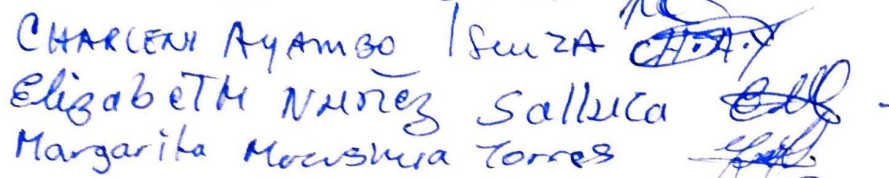 CHARLENI AYAMBO ISUIZA CH.A.Y
ElizabeTH NUÑez Salluca
Margarita Torres